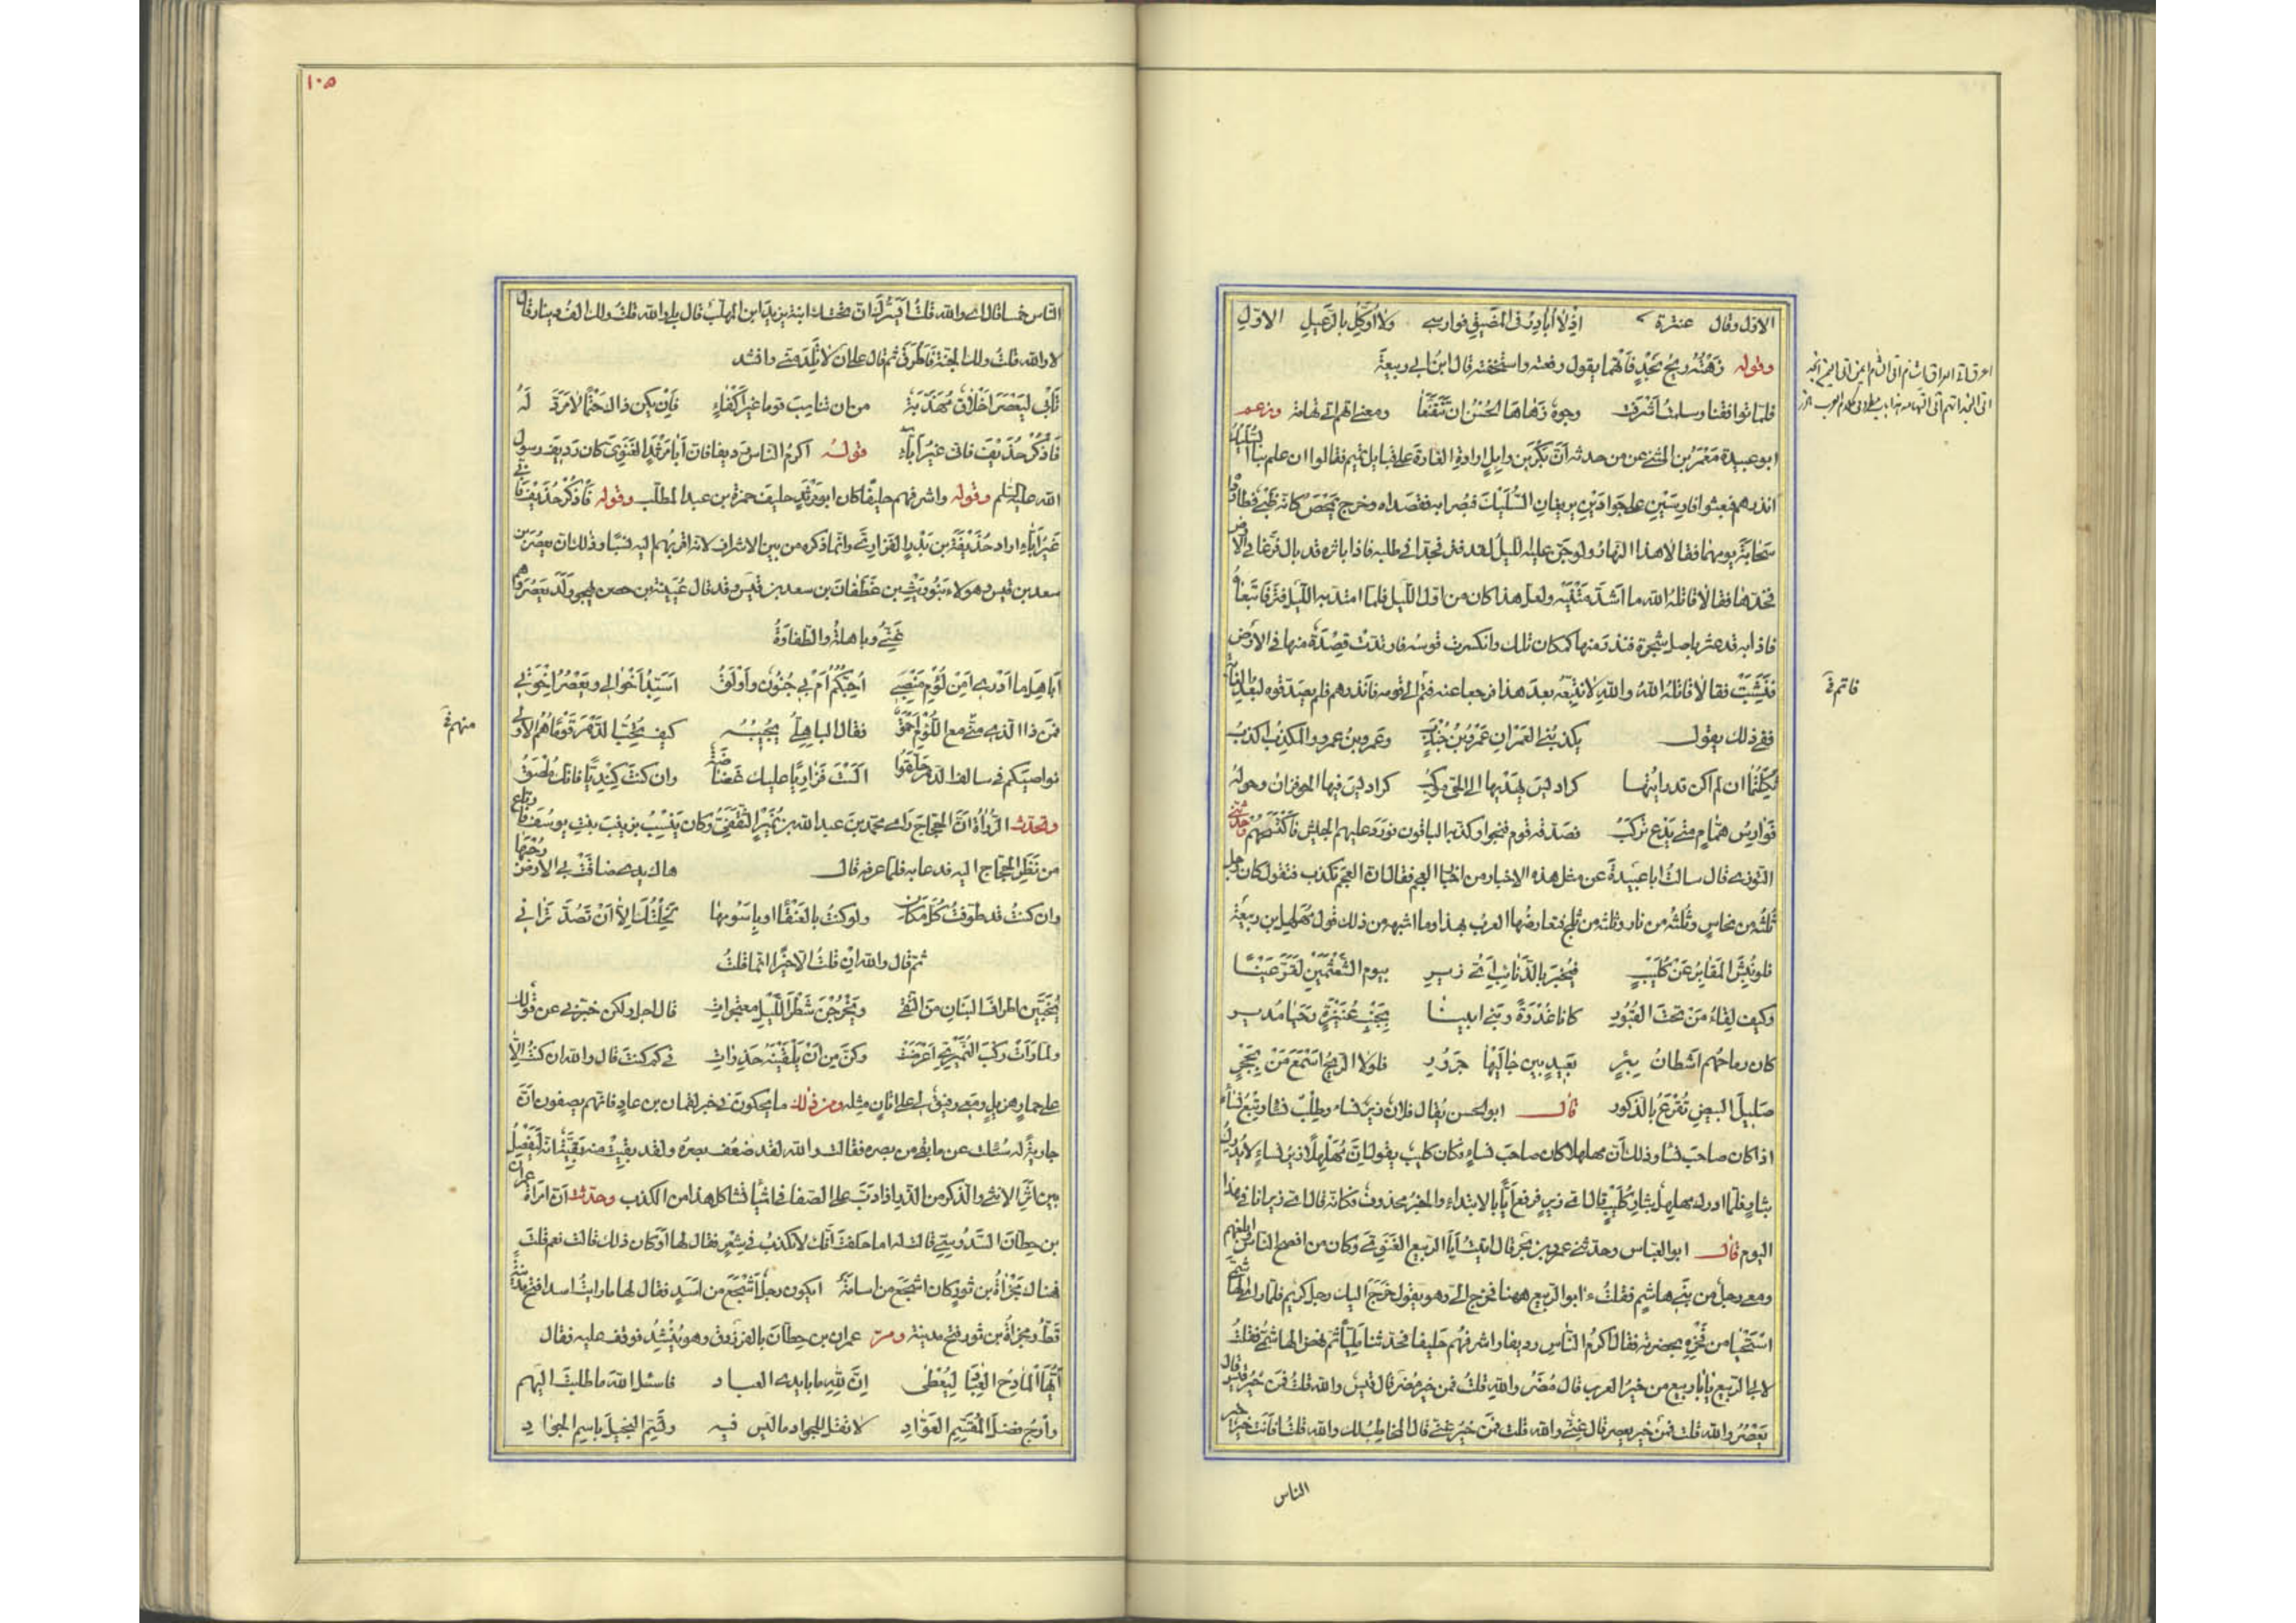 الاول وقال عنترة اذ لا ابادر في المضيق فوارسي ولا اوكل بالرعيل الاول
وقوله زهته ريح نجد فاتهما يقول رفعته واستخفته قال ابن ابي ربيعة
فلما تواقفنا وسلمت اشرقت وجوه زهاها الحسن ان تتقنعا ومعنى اتهم اتى تهامة وزعم
ابو عبيدة معمر بن المثنى عن من حدثه ان بكر بن وايل ارادوا الغارة على قبايل تميم فقالوا ان علم بنا السليك
انذرهم فبعثوا فارسين على جوادين يريغان السليك فبصرا به فقصداه وخرج يمحص كانه ظبي فطارداه
سحابة يومهما فقالا هذا النهار ولو جن عليه الليل لقد فتر فجدا في طلبه فاذا باثره قد بال فرغا في الارض
فخدها فقالا قاتله الله ما اشد متنيه ولعل هذا كان من اول الليل فلما امتد به الليل فتر فاتبعاه
فاذا به قد عثر باصل شجرة فندر منها كمكان تلك وانكسرت قوسه فارتدت قصدة منها في الارض
فنشبت فقالا قاتله الله والله لا نتبعه بعد هذا فرجعا عنه فتم الى قومه فانذرهم فلم يصدقوه لبعد الغاية
ففي ذلك يقول يكذبني العمران عمرو بن جندب وعمرو بن عمرو والمكذب اكذب
ثكلتكما ان لم اكن قد رايتها كراديس يهديها الى الحي موكب كراديس فيها الحوفزان وحوله
فوارس همام متى يدع تركب فصدقه قوم فنجوا وكذبه الباقون فورد عليهم الجيش فاكتسحهم وحدثني
التوزي قال سالت ابا عبيدة عن مثل هذه الاخبار من اخبار العجم فقال ان العجم تكذب فتقول كان رجل
ثلثه من نحاس وثلثه من نار وثلثه من ثلج فتعارضها العرب بهذا وما اشبهه من ذلك قول مهلهل بن ربيعة
فلو نبش المقابر عن كليب فيخبر بالذنائب اي زير بيوم الشعثمين لقر عينا
وكيف لقاء من تحت القبور كانا غدوة وبني ابينا بجنب عنيزة رحيا مدير
كان رماحهم اشطان بئر بعيد بين جاليها جرور فلولا الريح اسمع من بحجر
صليل البيض تقرع بالذكور قال ابو الحسن يقال فلان زير نساء وطلب نساء وتبع نساء
اذا كان صاحب نساء وذلك ان مهلهلا كان صاحب نساء وكان كليب يقول ان مهلهلا زير نساء لا يدرك
بثار فلما ادرك مهلهل بثار كليب قال اي زير فرفع ايا بالابتداء والخبر محذوف فكانه قال اي زير انا في هذا
اليوم قال ابو العباس وحدثني عمرو بن بحر قال اتيت ابا الربيع الغنوي وكان من افصح الناس وابلغهم
ومعي رجل من بني هاشم فقلت ءابو الربيع ههنا فخرج الي وهو يقول خرج اليك رجل كريم فلما راى الهاشمي
استحيا من فخره بحضرته فقال اكرم الناس رديفا واشرفهم حليفا فتحدثنا مليا ثم نهض الهاشمي فقلت
لابي الربيع يا ابا ربيع من خير العرب قال مضر والله قلت فمن خير مضر قال قيس والله قلت فمن خير قيس قال
يعصر والله قلت فمن خير يعصر قال غني والله قلت فمن خير غني قال المخاطب لك والله قلت افانت خير
الناس
فاتم في
١٠٥
الناس خمسا قال اي والله قلت ايسرك ان تحتك ابنة يزيد ابن المهلب قال لا والله قلت ولك الف دينار قال
لا والله قلت ولك الجنة فاطرق ثم قال على ان لا تلد مني وانشد
تابى ليعصر اخلاق مهذبة من ان تناسب قوما غير اكفاء فان يكن ذاك حتما لا مرد له
فاذكر حذيف فاني غير اباء قوله اكرم الناس رديفا فان ابا مرثد الغنوي كان رديف رسول
الله عليه السلم وقوله واشرفهم حليفا كان ابو مرثد حليف حمزة بن عبد المطلب وقوله فاذكر حذيف فاني
غير اباء اراد حذيفة بن بدر الفزاري وانما ذكره من بين الاشراف لانه اقربهم اليه نسبا وذلك ان يعصر بن
سعد بن قيس وهولاء بنو ريث بن غطفان بن سعد بن قيس وقد قال عيينة بن حصن يهجو ولد يعصر وهم
غني وباهلة والطفاوة
اباهل ما ادري امن لؤم منصبي احبكم ام بي جنون واولق اسيد اخوالي ويعصر اخوتي
فمن ذا الذي مني مع اللؤم احمق فقال الباهلي يجيبه كيف تحب الدهر قوما هم الاولى
نواصيكم في سالف الدهر حلقوا الست فزاريا عليك غضاضة وان كنت كنديا فانك ملصق
وتحدث الرواة ان الحجاج راى محمد بن عبد الله بن نمير الثقفي وكان ينسب بزينب بنت يوسف فارتاع
من نظر الحجاج اليه فدعا به فلما عرفه قال هاك يدي ضاقت بي الارض رحبها
وان كنت قد طوفت كل مكان ولو كنت بالعنقاء او باسومها لخلتك الا ان تصد تراني
ثم قال والله ان قلت الا خيرا انما قلت
يخبين اطراف البنان من التقى ويخرجن شطر الليل معتجرات قال اجل ولكن خبرني عن قولك
ولما رات ركب النميري اعرضت وكن من ان يلقينه حذرات في كم كنت قال والله ان كنت الا
على حمار هزيل ومعي رفيق لي على اتان مثله ومن ذلك ما يحكون في خبر لقمان بن عاد فانهم يصفون ان
جارية له سئلت عن ما بقي من بصره فقالت والله لقد ضعف بصره ولقد بقيت منه بقية انه ليفصل
بين اثر الانثى والذكر من الذر اذا دب على الصفا في اشياء تشاكل هذا من الكذب وحدثت ان امراة عمران
بن حطان السدوسي قالت له اما حلفت انك لا تكذب في شعر فقال لها اوكان ذلك قالت نعم قلت
فهناك مجزاة بن ثور كان اشجع من اسامة ايكون رجل اشجع من اسد فقال لها ما رايت اسدا فتح مدينة
قط ومجزاة بن ثور فتح مدينة ومر عمران بن حطان بالفرزدق وهو ينشد فوقف عليه فقال
ايها المادح العباد ليعطى ان لله ما بايدي العباد فاسئل الله ما طلبت اليهم
وارج فضل المقسم العواد لا تقل للجواد ما ليس فيه وتسم البخيل باسم الجواد
منهم في